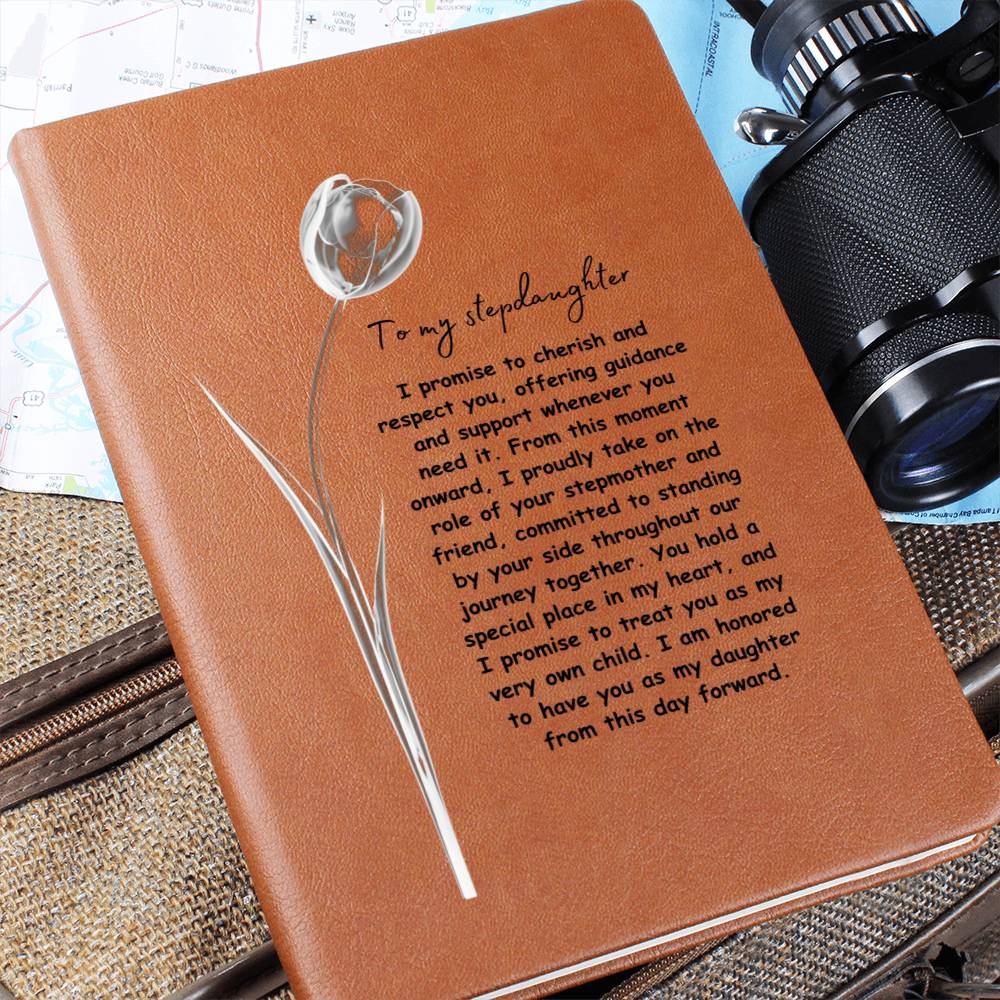 To my stepdaughter
I promise to cherish and
respect you, offering guidance
and support whenever you
need it. From this moment
onward, I proudly take on the
role of your stepmother and
friend, committed to standing
by your side throughout our
journey together. You hold a
special place in my heart, and
I promise to treat you as my
very own child. I am honored
to have you as my daughter
from this day forward.
Parrish
Buffalo Creek
Golf Course
Woodlands G C
Airport
Ranch
Dixie Sky
41
41
INTRACOASTAL
Park